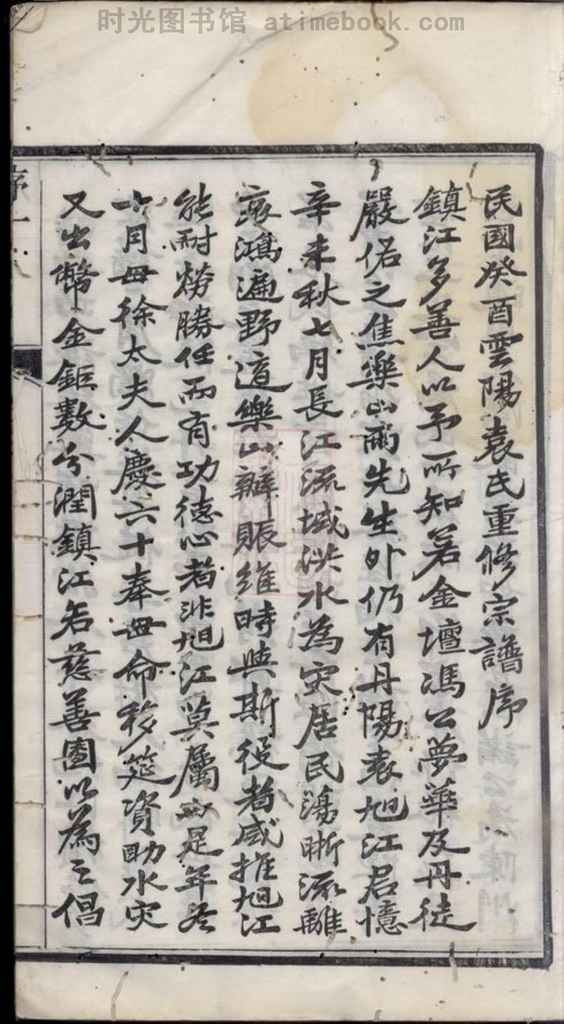 时光图书馆 atimebook.com
民國癸酉雲陽袁氏重修宗譜序
鎮江多善人以予所知若金壇馮公夢華及丹徒
嚴佑之焦樂山兩先生外仍有丹陽袁旭江君憶
辛未秋七月長江流域洪水為災居民蕩晰流離
哀鴻遍野適樂山辦賑維時與斯役者咸推旭江
能耐勞勝任而有功德心者非旭江莫屬也是年冬
六月毋徐太夫人慶六十奉母命移筵資助水灾
又出幣金鉅數分潤鎮江各慈善團以為之倡
序一